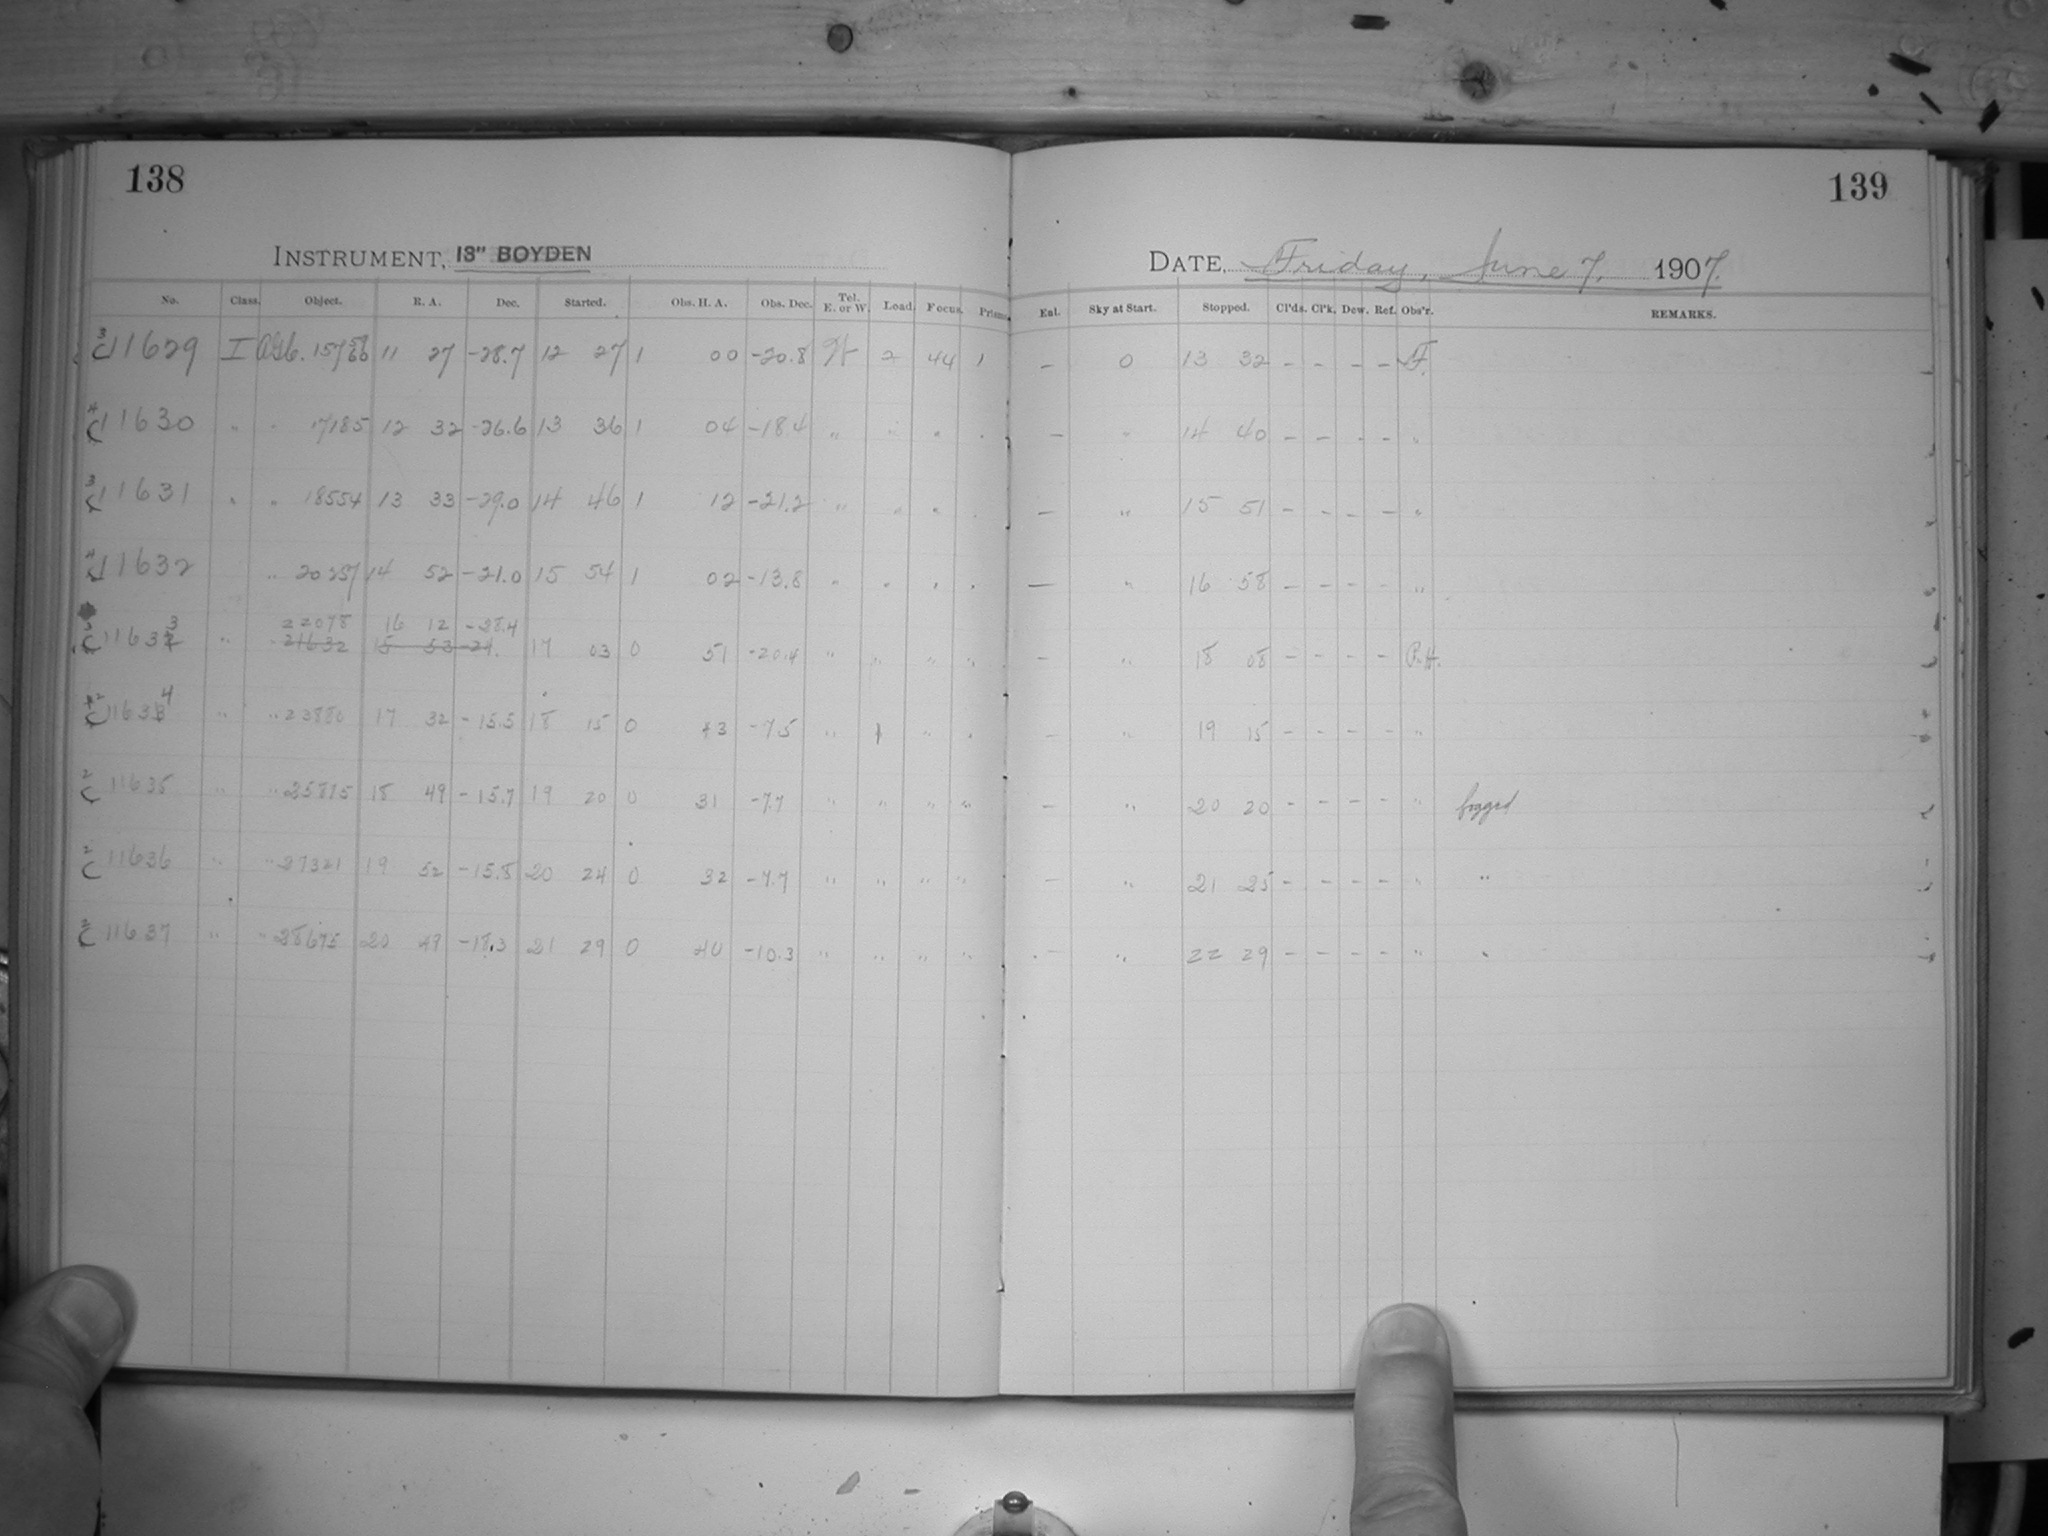 138
139
INSTRUMENT, 13" BOYDEN
DATE, Friday, June 7, 1907.
No. Class. Object. R. A. Dec. Started. Obs. H. A. Obs. Dec. Tel. E. or W. Load. Focus. Prisms. Enl. Sky at Start. Stopped. Cl'ds. Cl'k. Dew. Ref. Obs'r. REMARKS.
11629 I 11 27 -28.7 12 27 1 00 -20.8 2 44 1 — 0 13 32 – – – – F.
11630 " " 17185 12 32 -26.6 13 36 1 04 -18.4 " " " " — " 14 40 – – – – "
11631 " " 18554 13 33 -29.0 14 46 1 12 -21.2 " " " " — " 15 51 – – – – "
11632 " 20257 14 52 -21.0 15 54 1 02 -13.8 " " " " — " 16 58 – – – – "
22078 16 12 -28.4
11633 " " 21632 15 53 17 03 0 51 -20.4 " " " " — " 18 08 – – – – P.H.
11634 " " 23880 17 32 -15.5 18 15 0 43 -7.5 " 1 " " — " 19 15 – – – – "
11635 " " 25815 18 49 -15.7 19 20 0 31 -7.7 " " " " — " 20 20 – – – – " fogged
11636 " " 27321 19 52 -15.8 20 24 0 32 -7.7 " " " " — " 21 25 – – – – " "
11637 " " 28675 20 49 -18.3 21 29 0 40 -10.3 " " " " — " 22 29 – – – – " "